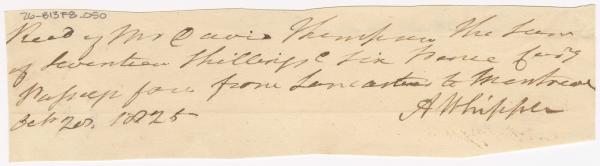 76-813F8-050
Recd of Mr David Thompson the Sum
of Seventeen Shillings & Six Pence
Passage from Lancaster to Montreal
Octr 20, 1825
A Whipple